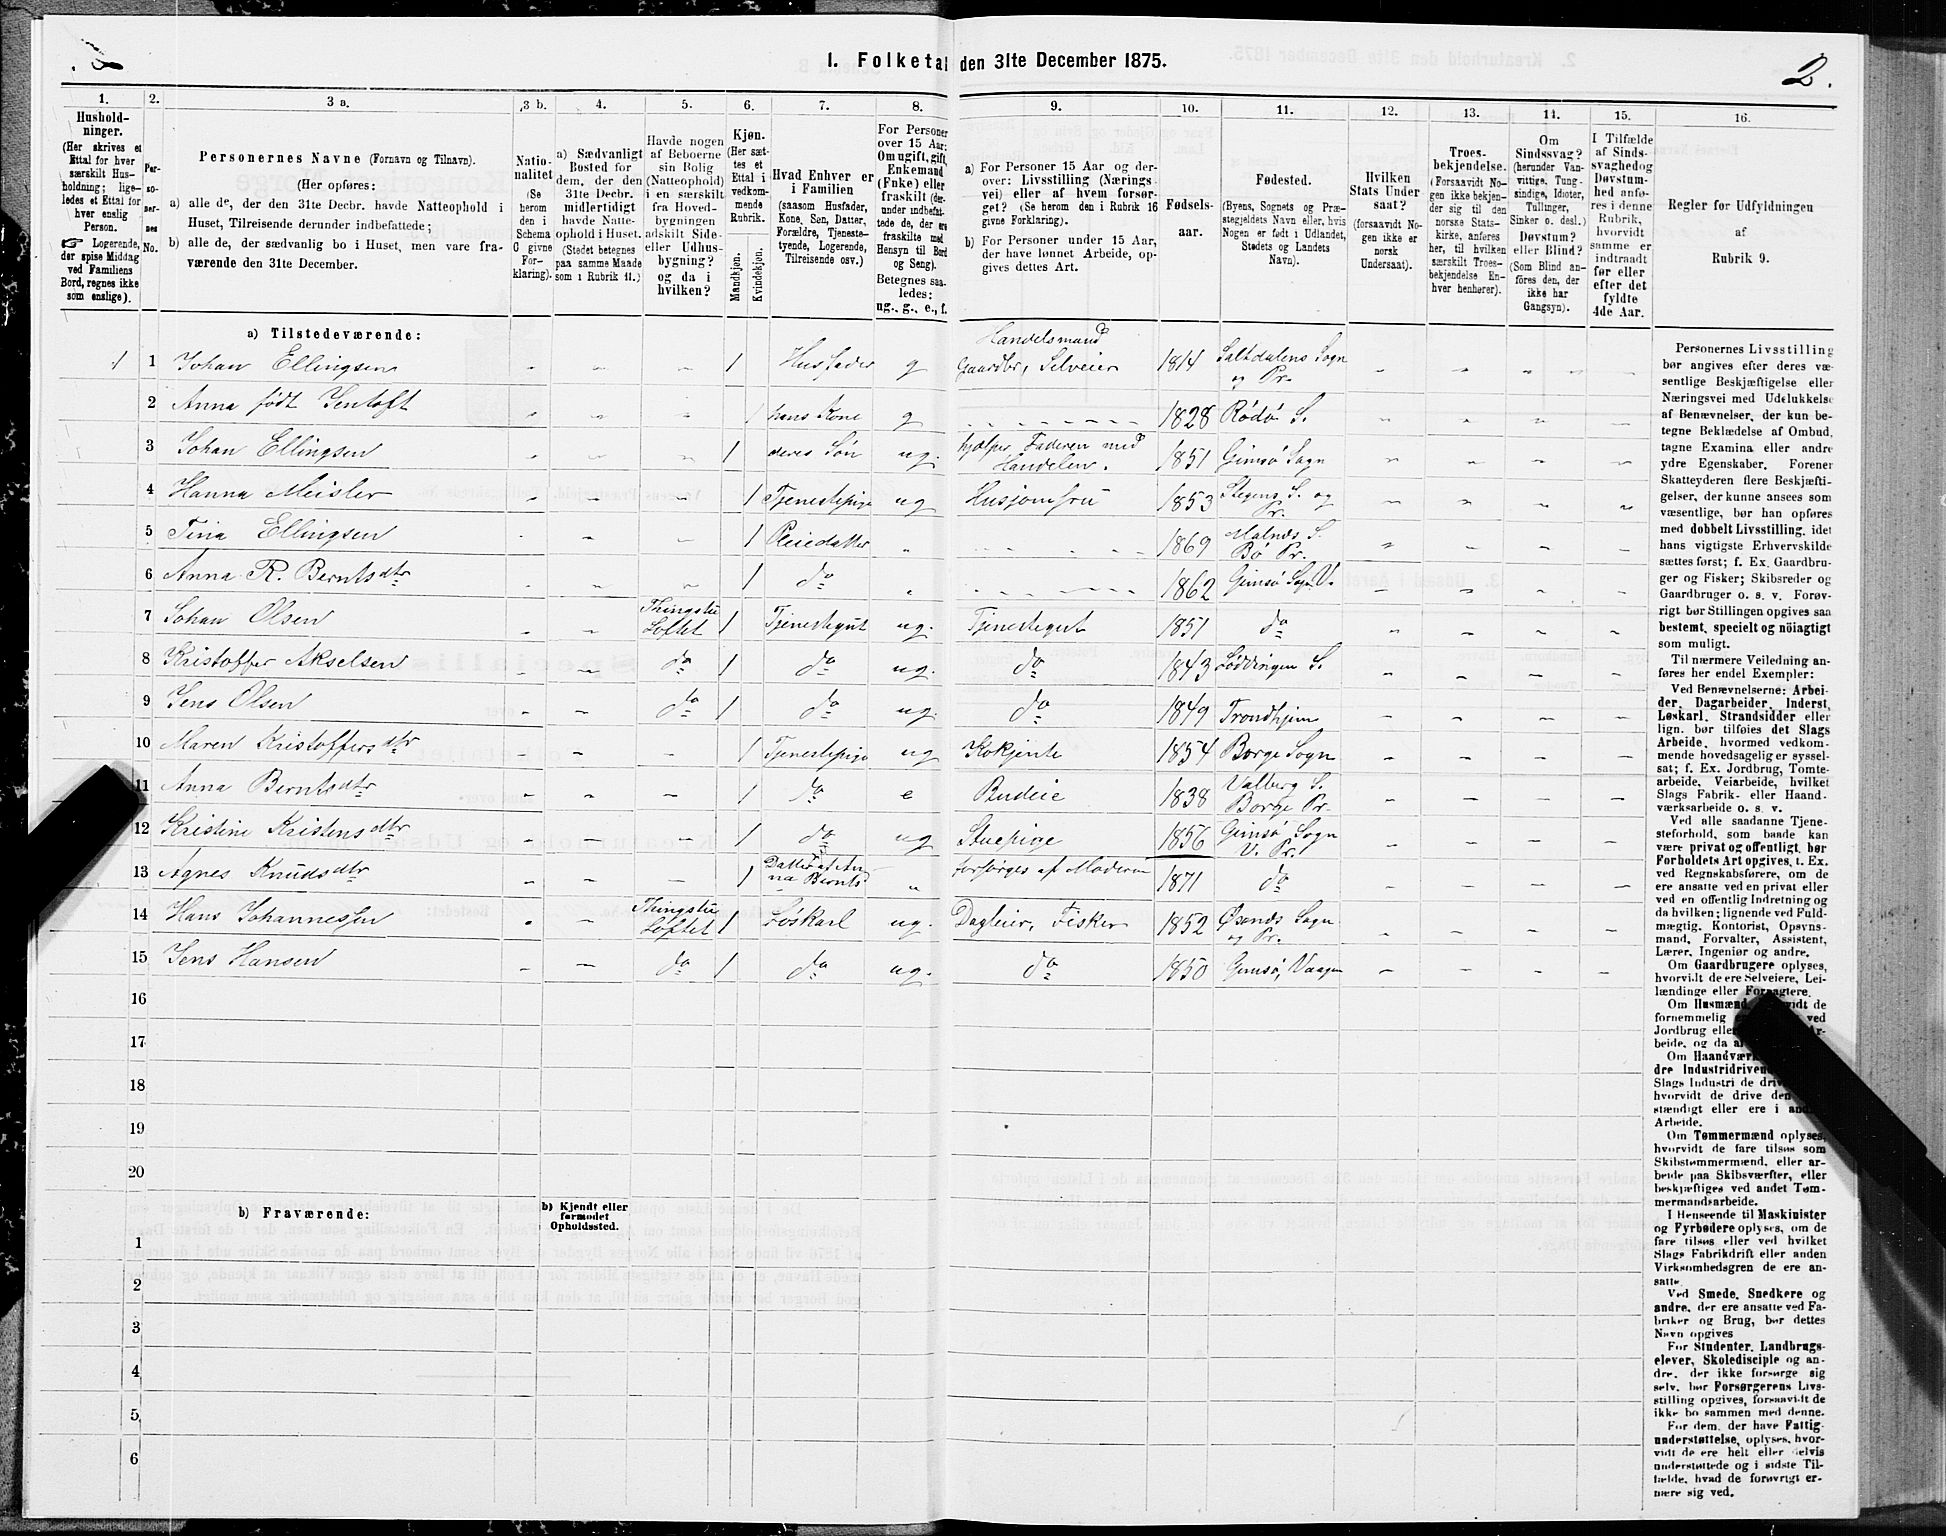 1. Folketal den 31te December 1875.
2.
1.
Hushold-
ninger.
(Her skrives et
Ettal for hver
særskilt Hus-
holdning; lige-
ledes et Ettal for
hver enslig
Person.
Logerende,
der spise Middag
ved Familiens
Bord, regnes ikke
som enslige).
2.
Per-
so-
ner-
nes
No.
3 a.
Personernes Navne (Fornavn og Tilnavn).
(Her opføres:
a) alle de, der den 31te Decbr. havde Natteophold i
Huset, Tilreisende derunder indbefattede;
b) alle de, der sædvanlig bo i Huset, men vare fra-
værende den 31te December.
3 b.
Natio-
nalitet
(Se
herom
den i
Schema
C givne
For-
klaring).
4.
a) Sædvanligt
Bosted for
dem, der den
31te Decbr.
midlertidigt
havde Natte-
ophold i Huset.
(Stedet betegnes
paa samme Maade
som i Rubrik 11.)
5.
Havde nogen
af Beboerne
sin Bolig
(Natteophold)
i en særskilt
fra Hoved-
bygningen
adskilt Side-
eller Udhus-
bygning?
og da i
hvilken?
6.
Kjøn.
(Her sæt-
tes et
Ettal i
vedkom-
mende
Rubrik.
Mandkjøn.
Kvindekjøn.
7.
Hvad Enhver er
i Familien
(saasom Husfader,
Kone, Søn, Datter,
Forældre, Tjeneste-
tyende, Logerende,
Tilreisende osv.)
8.
For Personer
over 15 Aar:
Om ugift, gift,
Enkemand
(Enke) eller
fraskilt (der-
under indbefat-
tede de, der ere
fraskilte med
Hensyn til Bord
og Seng).
Betegnes saa-
ledes:
ug., g., e., f.
9.
a) For Personer 15 Aar og der-
over: Livsstilling (Nærings-
vei) eller af hvem forsør-
get? (Se herom den i Rubrik 16
givne Forklaring).
b) For Personer under 15 Aar,
der have lønnet Arbeide, op-
gives dettes Art.
10.
Fødsels-
aar.
11.
Fødested.
(Byens, Sognets og Præ-
stegjeldets Navn eller, hvis
Nogen er født i Udlandet,
Stedets og Landets
Navn).
12.
Hvilken
Stats Under-
saat?
(forsaavidt No-
gen ikke er
norsk
Undersaat).
13.
Troes-
bekjendelse.
(Forsaavidt No-
gen ikke bekjen-
der sig til den
norske Stats-
kirke, anføres
her, til hvilken
særskilt Troes-
bekjendelse En-
hver henhører).
14.
Om
Sindssvag?
(herunder Van-
vittige, Tung-
sindige, Idioter,
Tullinger,
Sinker o. desl.)
Døvstum?
eller Blind?
(Som Blind an-
føres den, der
ikke har
Gangsyn).
15.
I Tilfælde
af Sinds-
svaghed og
Døvstum-
hed anfø-
res i denne
Rubrik,
hvorvidt
samme er
indtraadt
før eller
efter det
fyldte
4de Aar.
16.
Regler for Udfyldningen
af
Rubrik 9.
a) Tilstedeværende:
1 1 Johan Ellingsen 1 Husfader g Handelsmand Gaardbr, Selveier 1814 Saltdalens Sogn og Pr.
2 Anna født Jentoft 1 hans Kone g 1828 Rødø S.
3 Johan Ellingsen 1 deres Søn ug. hjælper Faderen med Handelen. 1851 Gimsø Sogn
4 Hanna Meisler 1 Tjenestepige ug Husjomfru 1853 Stegens S. og Pr.
5 Tina Ellingsen 1 Pleiedatter 1869 Malnæs S. Bø Pr.
6 Anna R. Berntsdtr 1 do 1862 Gimsø Sogn V.
7 Johan Olsen Thingstu Loftet 1 Tjenestegut ug. Tjenestegut 1851 do
8 Kristoffer Akselsen do 1 do ug. do 1843 Løddingen S.
9 Jens Olsen do 1 do ug. do 1849 Trondhjem
10 Maren Kristoffersdtr 1 Tjenestepige ug Kokjente 1854 Borge Sogn
11 Anna Berntsdtr 1 do e Budeie 1838 Valberg S. Borge Pr.
12 Kristine Kristensdtr 1 do ug Stuepige 1856 Gimsø Sogn V. Pr.
13 Agnes Knudsdtr 1 Datter af Anna Bernts forsørges af Moderen 1871 do
14 Hans Johannessen Thingstu Loftet 1 Løskarl ug. Dagleier, Fisker 1852 Øxnæs Sogn og Pr.
15 Jens Hansen do 1 do ug. do 1850 Gimsø, Vaagen
16
17
18
19
20
b) Fraværende:
b) Kjendt eller
formodet
Opholdssted.
1
2
3
4
5
6
Personernes Livsstilling
bør angives efter deres væ-
sentlige Beskjæftigelse eller
Næringsvei med Udelukkelse
af Benævnelser, der kun be-
tegne Beklædelse af Ombud,
tagne Examina eller andre
ydre Egenskaber. Forener
Skatteyderen flere Beskjæfti-
gelser, der kunne ansees som
væsentlige, bør han opføres
med dobbelt Livsstilling, idet
hans vigtigste Erhvervskilde
sættes først; f. Ex. Gaardbru-
ger og Fisker; Skibsreder og
Gaardbruger o. s. v. Forøv-
rigt bør Stillingen opgives saa
bestemt, specielt og nöiagtigt
som muligt.
Til nærmere Veiledning an-
føres her endel Exempler:
Ved Benævnelserne: Arbei-
der, Dagarbeider, Inderst,
Løskarl, Strandsidder eller
lign. bør tilføies det Slags
Arbeide, hvormed vedkom-
mende hovedsagelig er syssel-
sat; f. Ex. Jordbrug, Tomte-
arbeide, Veiarbeide, hvilket
Slags Fabrik- eller Haand-
værksarbeide o. s. v.
Ved alle saadanne Tjene-
steforhold, som baade kan
være privat og offentligt, bør
Forholdets Art opgives, t. Ex.
ved Regnskabsførere, om de
ere ansatte ved en privat eller
ved en offentlig Indretning og
da hvilken; lignende ved Fuld-
mægtig, Kontorist, Opsyns-
mand, Forvalter, Assistent,
Lærer, Ingeniør og andre.
Om Gaardbrugere oplyses,
hvorvidt de ere Selveiere, Lei-
lændinge eller Forpagtere.
Om Husmænd
fornemmelig
Jordbrug eller
beide, og da
Om Haandværk
dre Industridrivende
Slags Industri de drive
hvorvidt de drive den
stændigt eller ere i andres
Arbeide.
Om Tømmermænd oplyses,
hvorvidt de fare tilsøs som
Skibstømmermænd, eller ar-
beide paa Skibsværfter, eller
beskjæftiges ved andet Tøm-
mermandsarbeide.
I Henseende til Maskinister
og Fyrbødere oplyses, om de
fare tilsøs eller ved hvilket
Slags Fabrikdrift eller anden
Virksomhedsgren de ere an-
satte.
Ved Smede, Snedkere og
andre, der ere ansatte ved Fa-
briker og Brug, bør dettes
Navn opgives
For Studenter, Landbrugs-
elever, Skoledisciple og an-
dre, der ikke forsørge sig
selv, bør Forsørgerens Livs-
stilling opgives, forsaavidt de
ikke bo sammen med denne.
For dem, der have Fattig-
understøttelse, oplyses, hvor-
vidt de ere helt eller delvis
understøttede og i sidste Til-
fælde, hvad de forøvrigt er-
nære sig ved.